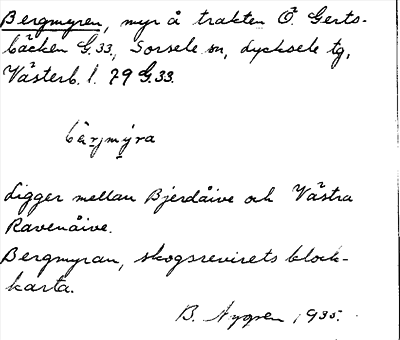 Bergmyren, myr å trakten Ö. Gerts-
bäcken G.33, Sorsele sn, Lycksele tg,
Västerb. l. 79 G.33.
bærjmýra
Ligger mellan Bjerdåive och Västra
Ravenåive.
Bergmyran, skogsrevirets block-
karta.
B. Nygren 1935.